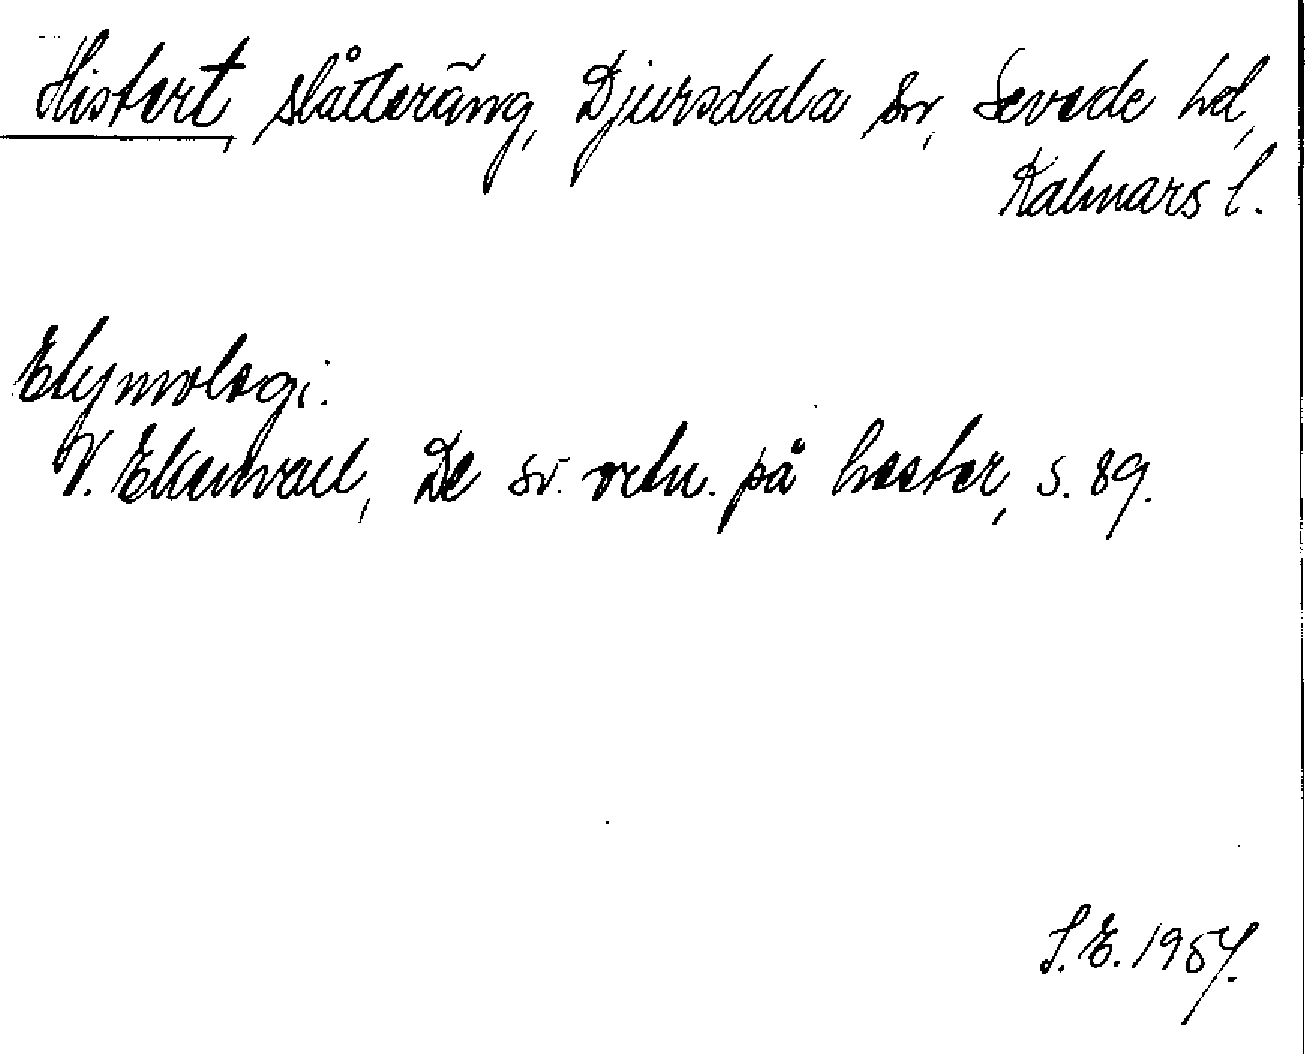 Histert, slåtteräng, Djursdala sn, Sevede hd,
Kalmars l.
Etymologi.
V. Ekenvall, De sv. ortn. på hester, s. 89.
S. E. 1957.